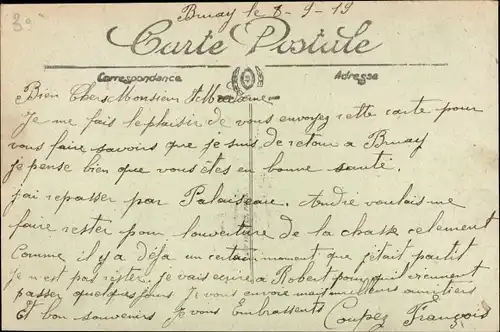 Bruay le 8-9-19
Carte Postale
Correspondance
Adresse
Bien Chers Monsieur et Madame
Je me fais le plaisir de vous envoyez cette carte pour
vous faire savoirs que je suis de retour a Bruay
je pense bien que vous êtes en bonne santé.
j'ai repasser par Palaiseau. André voulais me
faire rester pour l'ouverture de la chasse celement
Comme il y a déja un certain moment que j'était partit
Je n'est pas rister. Je vais ecrire a Robert pour qu'il viennent
passer quelques jours Je vous envoie mes meilleurs amitiers
Et bon souvenirs Je vous Embrassents Coupez François